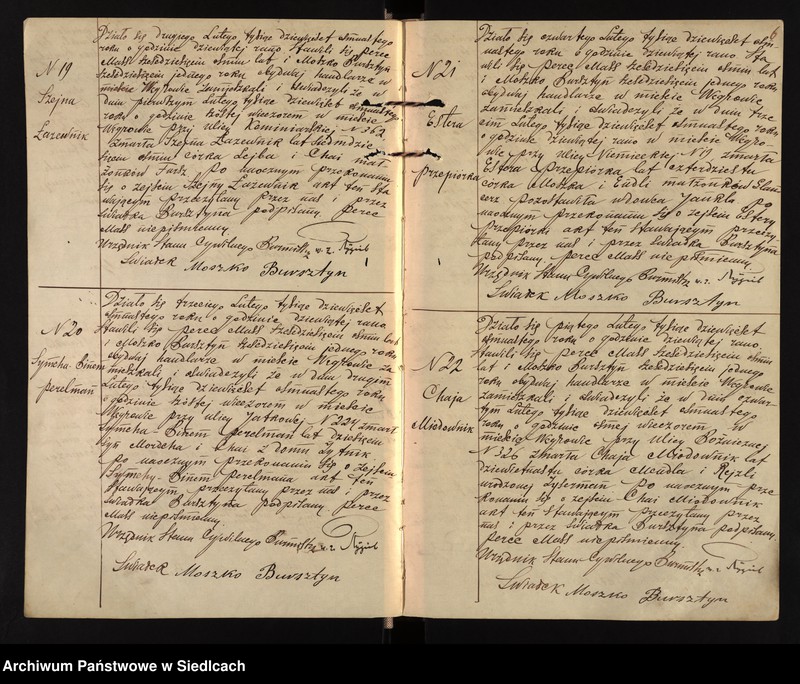 Działo się drugiego Lutego tysiąc dziewięćset ósmnastego
roku o godzinie dziewiątej rano. Stawili się Perec
Mass sześdziesięciu ośmiu lat i Moszko Bursztyn
sześdziesięciu jednego roku obydwaj handlarze w
mieście Węgrowie zamieszkali i świadczyli że w
dniu pierwszym Lutego tysiąc dziewięćset ósmnastego
roku o godzinie szóstej wieczorem w mieście
Węgrowie przy ulicy Kominiarskiej N 362
zmarła Szejna Łazewnik lat siedmdzie
sięciu ośmiu córka Lejba i Chai mał
żonków Farsz po naocznym przekonaniu
się o zejściu Szejny Łazewnik akt ten sta
wającym przeczytany przez nas i przez
świadka Bursztyna podpisany. Perec
Mass niepiśmienny.
Urzędnik Stanu Cywilnego Burmistrz
Świadek Moszko Bursztyn
N 19
Szejna
Łazewnik
Działo się trzeciego Lutego tysiąc dziewięćset
ósmnastego roku o godzinie dziewiątej rano.
Stawili się Perec Mass sześdziesięciu ośmiu lat
i Moszko Bursztyn sześdziesięciu jednego roku
obydwaj handlarze w mieście Węgrowie za
mieszkali i świadczyli że w dniu drugim
Lutego tysiąc dziewięćset ósmnastego roku
o godzinie szóstej wieczorem w mieście
Węgrowie przy ulicy Jatkowej N 224 zmarł
Symcha-Binem Perelman lat dziesięciu
syn Mordcha i Chai z domu Lytnik
po naocznym przekonaniu się o zejściu
Symchy-Binem Perelmana akt ten
stawającym przeczytany przez nas i przez
świadka Bursztyna podpisany Perec
Mass niepiśmienny.
Urzędnik Stanu Cywilnego Burmistrz
Świadek Moszko Bursztyn
N 20
Symcha-Binem
Perelman
6
Działo się czwartego Lutego tysiąc dziewięćset ośm
nastego roku o godzinie dziewiątej rano. Sta
wili się Perec Mass sześdziesięciu ośmiu lat
i Moszko Bursztyn sześdziesięciu jednego roku
obydwaj handlarze w mieście Węgrowie
zamieszkali i świadczyli że w dniu trze
cim Lutego tysiąc dziewięćset ósmnastego roku
o godzinie dziewiątej rano w mieście Węgro
wie przy ulicy Niemieckiej N 19 zmarła
Estera Przepiórka lat czterdziestu
córka Moszka i Eudli małżonków
pozostawiła wdowca Jankla po
naocznym przekonaniu się o zejściu Estery
Przepiórki akt ten stawającym przeczy
tany przez nas i przez świadka Bursztyna
podpisany. Perec Mass niepiśmienny.
Urzędnik Stanu Cywilnego Burmistrz
Świadek Moszko Bursztyn
N 21
Estera
Przepiórka
Działo się piątego Lutego tysiąc dziewięćset
ósmnastego roku o godzinie dziewiątej rano.
Stawili się Perec Mass sześdziesięciu ośmiu
lat i Moszko Bursztyn sześdziesięciu jednego
roku obydwaj handlarze w mieście Węgrowie
zamieszkali i świadczyli że w dniu czwar
tym Lutego tysiąc dziewięćset ósmnastego
roku o godzinie ósmej wieczorem w
mieście Węgrowie przy ulicy Bóżnicznej
N 326 zmarła Chaja Miodownik lat
dziewietnastu córka Mendla i Rejzli
urodzonej po naocznym prze
konaniu się o zejściu Chai Miodownik
akt ten stawającym przeczytany przez
nas i przez świadka Bursztyna podpisany.
Perec Mass niepiśmienny.
Urzędnik Stanu Cywilnego Burmistrz
Świadek Moszko Bursztyn
N 22
Chaja
Miodownik
Archiwum Państwowe w Siedlcach